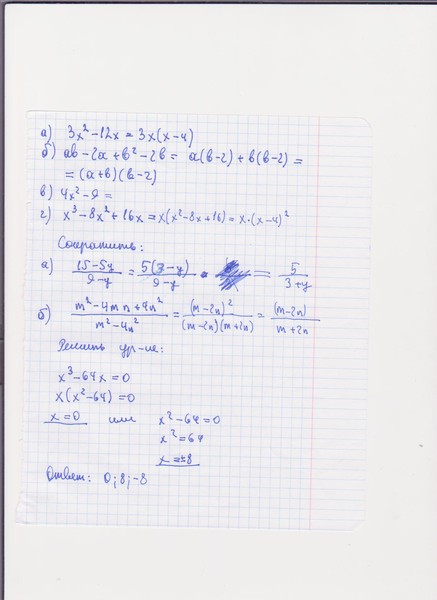 а) 3x² - 12x = 3x(x-4)
б) ab - 2a + b² - 2b = a(b-2) + b(b-2) =
= (a+b)(b-2)
в) 4x² - 9 =
г) x³ - 8x² + 16x = x(x² - 8x + 16) = x·(x-4)²
Сократить:
а) 15-5y / 9-y = 5(3-y) / 9-y = 5 / 3+y
б) m² - 4mn + 4n² / m² - 4n² = (m-2n)² / (m-2n)(m+2n) = (m-2n) / m+2n
Решить ур-ие:
x³ - 64x = 0
x(x² - 64) = 0
x = 0 или x² - 64 = 0
x² = 64
x = ±8
Ответ: 0; 8; -8